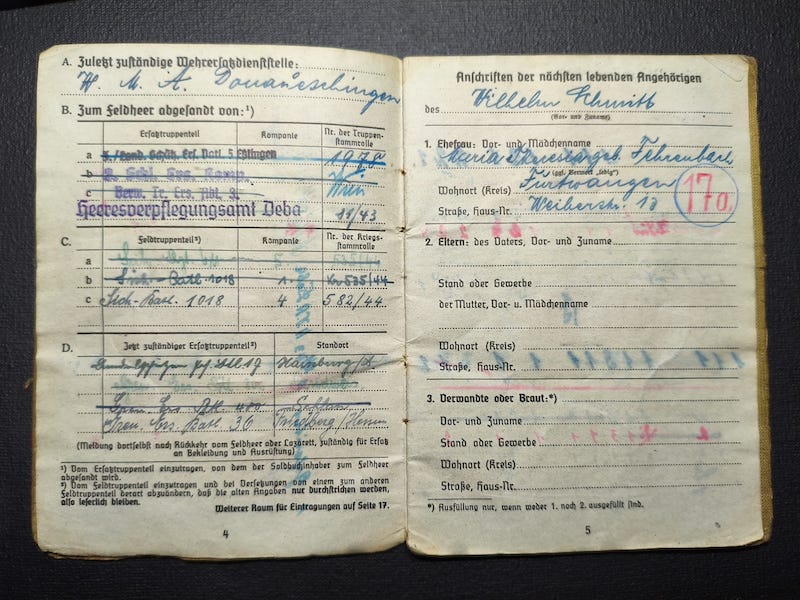 A. Zuletzt zuständige Wehrersatzdienststelle:
W. M. A. Donaueschingen
B. Zum Feldheer abgesandt von:¹)
Ersatztruppenteil
Kompanie
Nr. der Truppenstammrolle
a 5 Eßlingen 1978
b
c
Heeresverpflegungsamt Deba 11/43
C. Feldtruppenteil²) Kompanie Nr. der Kriegsstammrolle
a
b Sich-Batl. 1018 1. 535/44
c Sich-Batl. 1018 4 582/44
D. Jetzt zuständiger Ersatztruppenteil²) Standort
Gren. Ers. Batl. 36 Friedberg/Hessen
(Meldung dortselbst nach Rückkehr vom Feldheer oder Lazarett, zuständig für Ersatz
an Bekleidung und Ausrüstung)
¹) Vom Ersatztruppenteil einzutragen, von dem der Soldbuchinhaber zum Feldheer
abgesandt wird.
²) Vom Feldtruppenteil einzutragen und bei Versetzungen von einem zum anderen
Feldtruppenteil derart abzuändern, daß die alten Angaben nur durchstrichen werden,
also leserlich bleiben.
Weiterer Raum für Eintragungen auf Seite 17.
4
Anschriften der nächsten lebenden Angehörigen
des Wilhelm Schmitt
(Vor- und Zuname)
1. Ehefrau: Vor- und Mädchenname
Maria Theresia geb. Fehrenbach
(ggf. Vermerk „ledig“)
Wohnort (Kreis) Furtwangen
17a.
Straße, Haus-Nr. Weiherstr. 13
2. Eltern: des Vaters, Vor- und Zuname
Stand oder Gewerbe
der Mutter, Vor- u. Mädchenname
Wohnort (Kreis)
Straße, Haus-Nr.
3. Verwandte oder Braut:*)
Vor- und Zuname
Stand oder Gewerbe
Wohnort (Kreis)
Straße, Haus-Nr.
*) Ausfüllung nur, wenn weder 1. noch 2. ausgefüllt sind.
5